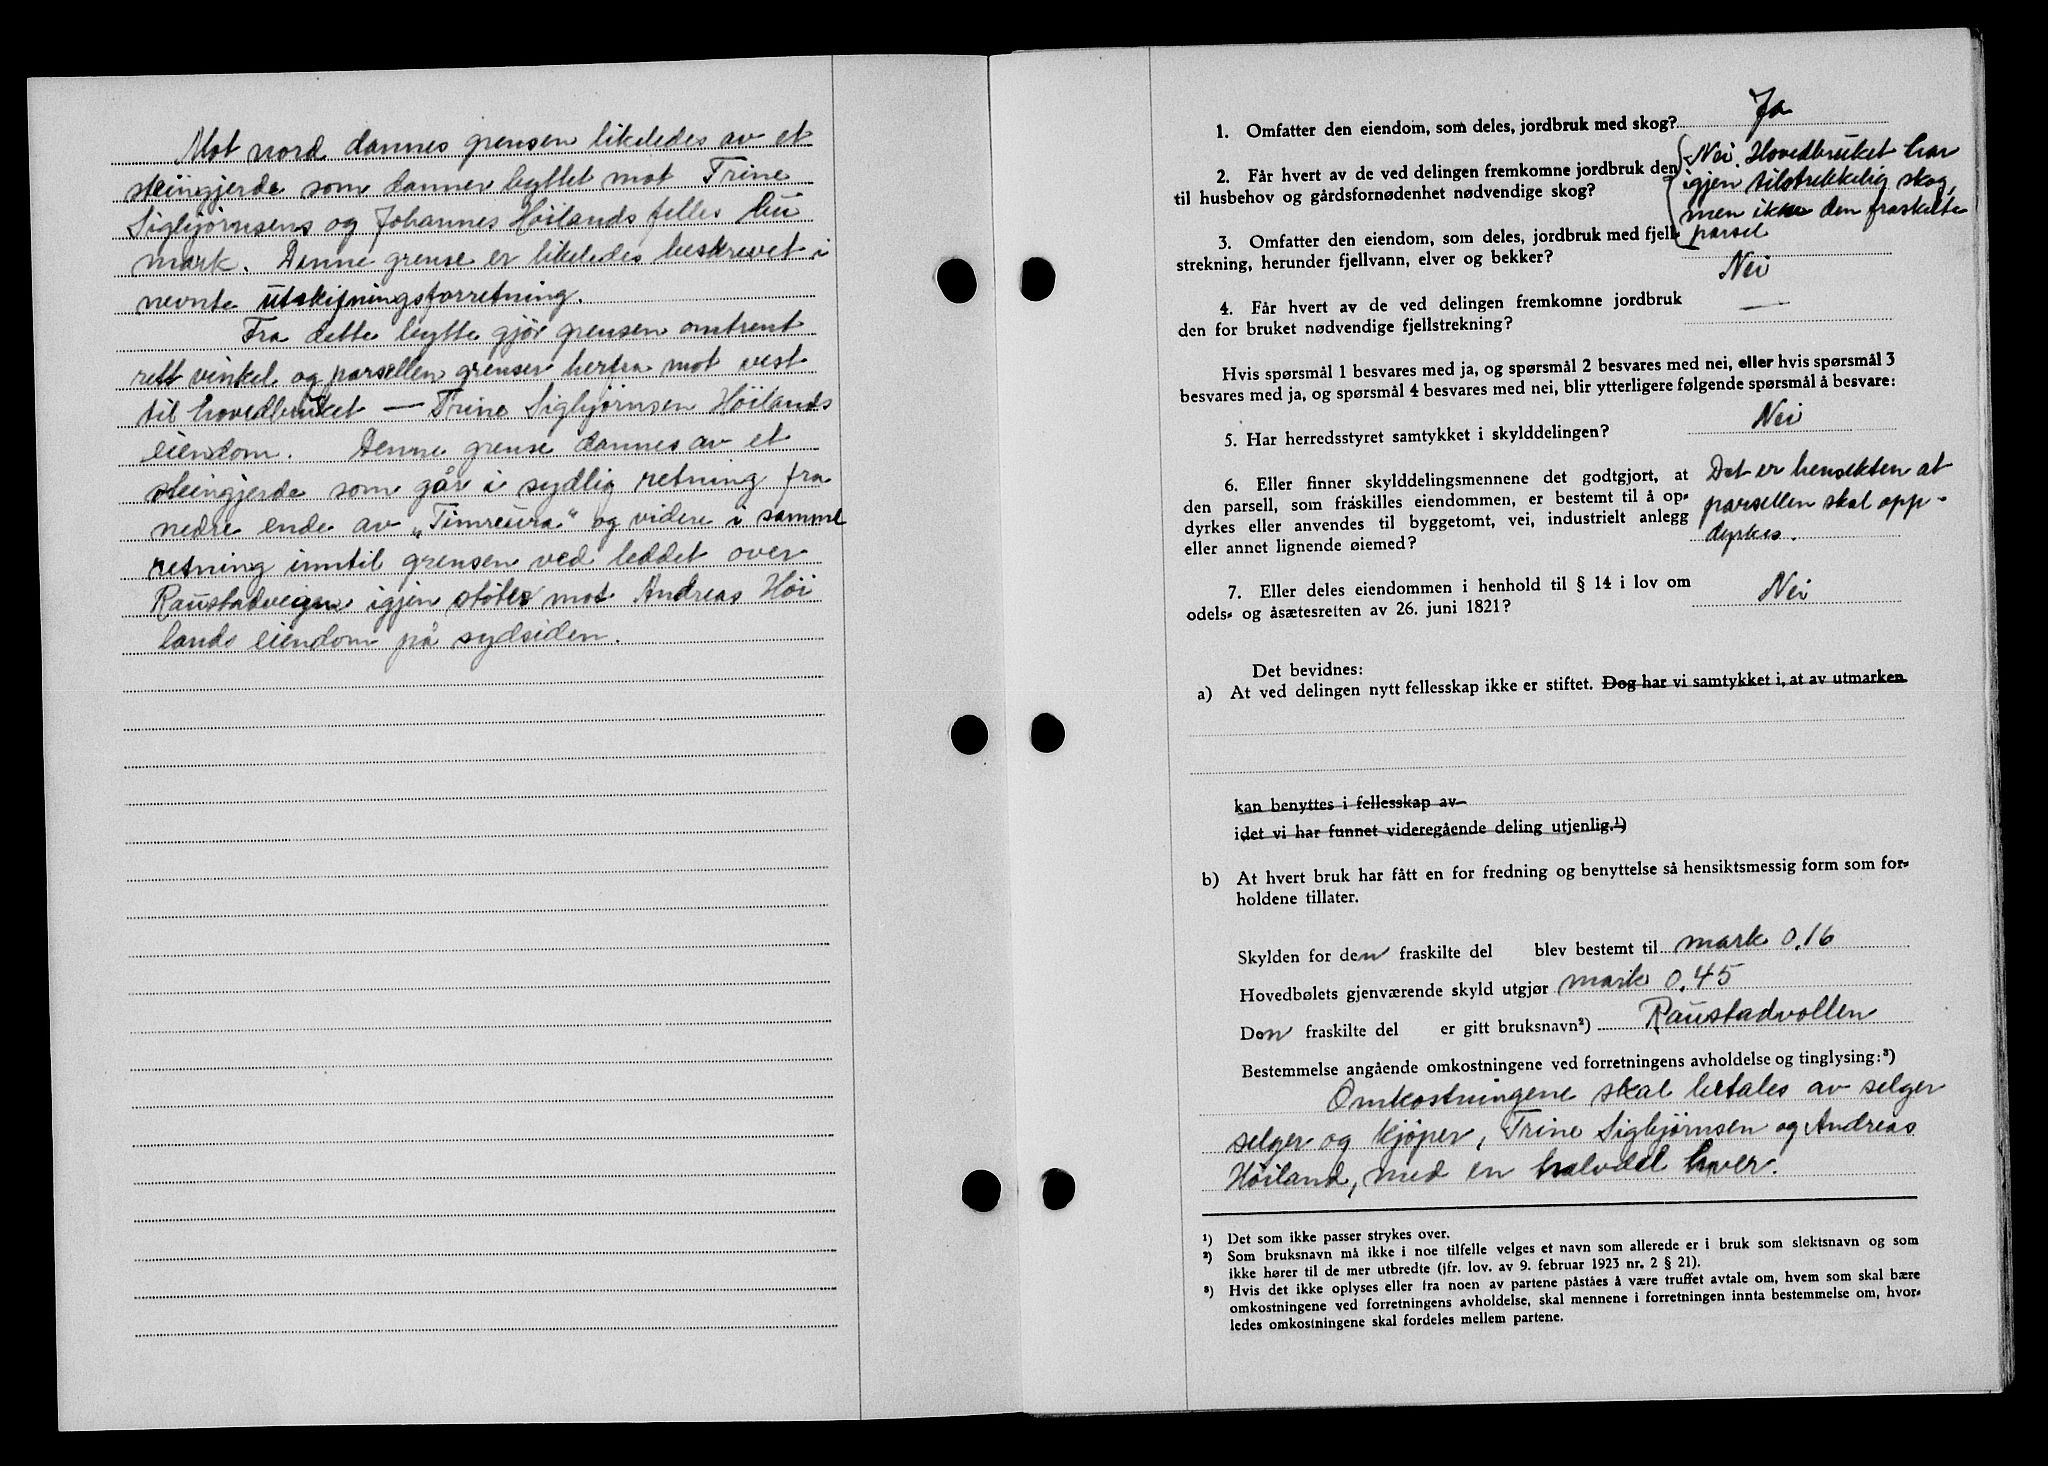 Mot nord dannes grensen likeledes av et
steingjerde som danner byttet mot Trine
Sigbjørnsens og Johannes Höilands felles bu
mark. Denne grense er likeledes beskrevet i
nevnte utskiftningsforretning.
Fra dette bytte gjör grensen omtrent
rett vinkel og parsellen grenser herfra mot vest
til hovedbruket — Trine Sigbjørnsen Höilands
eiendom. Denne grense dannes av et
steingjerde som går i sydlig retning fra
nedre ende av „Timreura“ og videre i samme
retning inntil grensen ved leddet over
Raustadveien igjen støter mot Andreas Höi
lands eiendom på sydsiden.
1. Omfatter den eiendom, som deles, jordbruk med skog? Ja
2. Får hvert av de ved delingen fremkomne jordbruk den
til husbehov og gårdsfornødenhet nødvendige skog?
Nei. Hovedbruket har
igjen tilstrekkelig skog,
men ikke den fraskilte
parsel
3. Omfatter den eiendom, som deles, jordbruk med fjell-
strekning, herunder fjellvann, elver og bekker? Nei
4. Får hvert av de ved delingen fremkomne jordbruk
den for bruket nødvendige fjellstrekning? —
Hvis spørsmål 1 besvares med ja, og spørsmål 2 besvares med nei, eller hvis spørsmål 3
besvares med ja, og spørsmål 4 besvares med nei, blir ytterligere følgende spørsmål å besvare:
5. Har herredsstyret samtykket i skylddelingen? Nei
6. Eller finner skylddelingsmennene det godtgjort, at
den parsell, som fraskilles eiendommen, er bestemt til å op-
dyrkes eller anvendes til byggetomt, vei, industrielt anlegg
eller annet lignende øiemed?
Det er hensikten at
parsellen skal opp-
dyrkes.
7. Eller deles eiendommen i henhold til § 14 i lov om
odels- og åsætesretten av 26. juni 1821? Nei
Det bevidnes:
a) At ved delingen nytt fellesskap ikke er stiftet. Dog har vi samtykket i, at av utmarken
kan benyttes i fellesskap av
idet vi har funnet videregående deling utjenlig.¹)
b) At hvert bruk har fått en for fredning og benyttelse så hensiktsmessig form som for-
holdene tillater.
Skylden for den fraskilte del blev bestemt til mark 0.16
Hovedbølets gjenværende skyld utgjør mark 0.45
Den fraskilte del er gitt bruksnavn²) Raustadvollen
Bestemmelse angående omkostningene ved forretningens avholdelse og tinglysing:³)
Omkostningene skal betales av selger
selger og kjøper, Trine Sigbjørnsen og Andreas
Höiland, med en halvdel hver.
¹) Det som ikke passer strykes over.
²) Som bruksnavn må ikke i noe tilfelle velges et navn som allerede er i bruk som slektsnavn og som
ikke hører til de mer utbredte (jfr. lov. av 9. februar 1923 nr. 2 § 21).
³) Hvis det ikke oplyses eller fra noen av partene påståes å være truffet avtale om, hvem som skal bære
omkostningene ved forretningens avholdelse, skal mennene i forretningen innta bestemmelse om, hvor-
ledes omkostningene skal fordeles mellem partene.